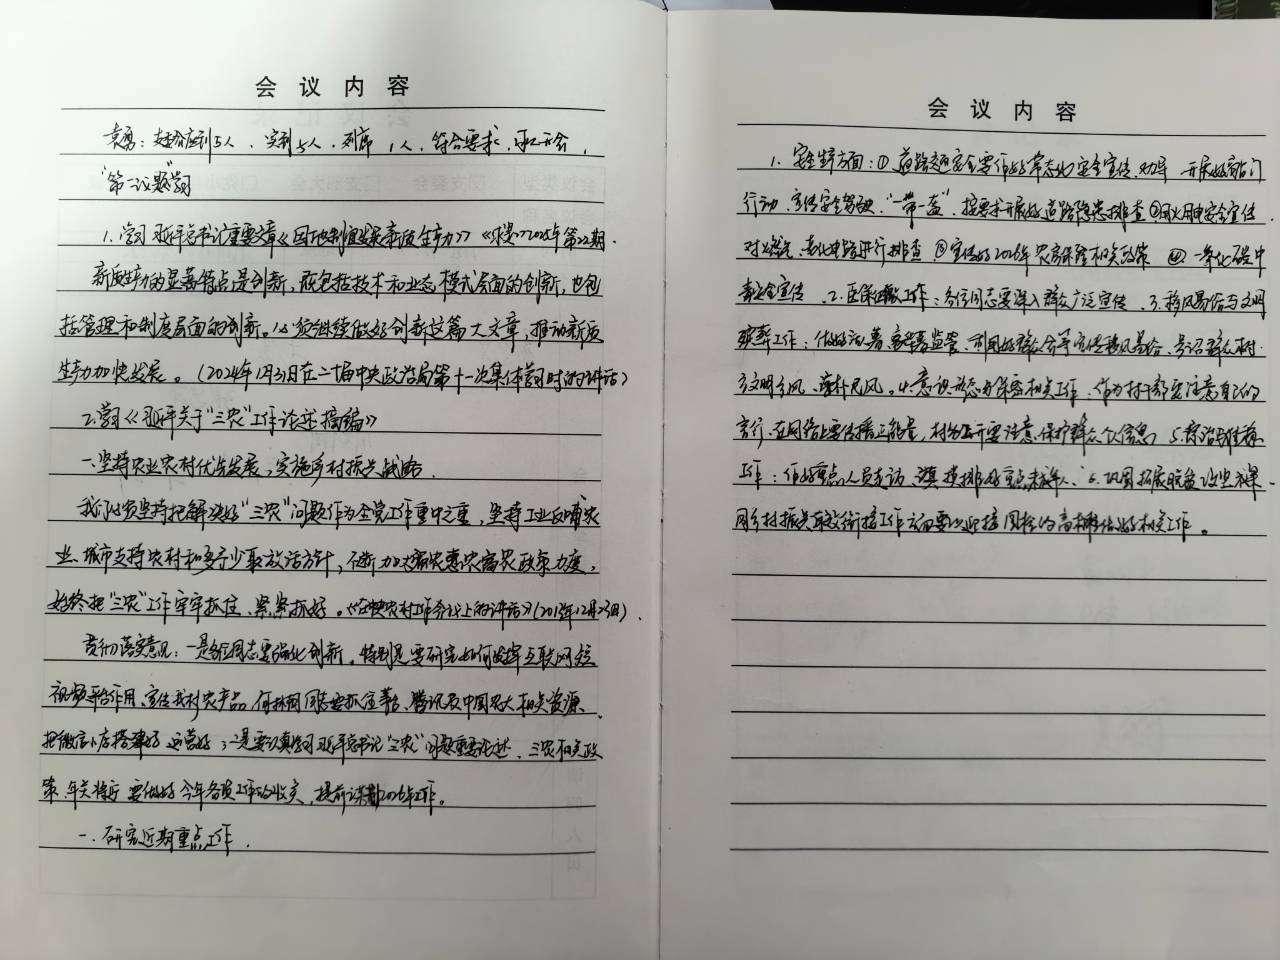 会 议 内 容
袁勇：支委会应到5人，实到5人，列席1人，符合要求，可以开会。
"第一议题"学习
1.学习习近平总书记重要文章《因地制宜发展新质生产力》《求是》2025年第22期.
新质生产力的显著特点是创新，既包括技术和业态模式层面的创新，也包
括管理和制度层面的创新。必须继续做好创新这篇大文章，推动新质
生产力加快发展。（2024年1月31日在二十届中央政治局第十一次集体学习时的讲话）
2.学习《习近平关于"三农"工作论述摘编》
一.坚持农业农村优先发展，实施乡村振兴战略.
我们必须坚持把解决好"三农"问题作为全党工作重中之重，坚持工业反哺农
业、城市支持农村和多予少取放活方针，不断加大强农惠农富农政策力度，
始终把"三农"工作牢牢抓住、紧紧抓好。《在中央农村工作会议上的讲话》(2013年12月23日).
贯彻落实意见：一是各位同志要强化创新，特别是要研究如何发挥互联网短
视频平台作用，宣传我村农产品，同志要抓住腾讯及中国农大相关资源、
把微信小店搭建好、运营好；二是要认真学习习近平总书记"三农"问题重要论述、三农相关政
策，年关将至，要做好今年各项工作的收尾，提前谋划2026年工作。
一.研究近期重点工作.
会 议 内 容
1.安全生产方面：①道路交通安全要做好常态化安全宣传、劝导，开展好敲门
行动，宣传安全驾驶，"一带一盔"，按要求开展好道路隐患排查②用火用电安全宣传
对燃气、老化电路进行排查③宣传好2026年农房保险相关政策 ④一氧化碳中
毒安全宣传。2.医保征缴工作：各位同志要深入群众广泛宣传。3.移风易俗与文明
殡葬工作：做好活人墓、豪华墓监管，利用好群众会等宣传移风易俗，号召群众树
立文明乡风、淳朴民风。4.意识形态及保密相关工作，作为村干部要注意自己的
言行，在网络上要传播正能量，村务公开要注意保护群众个人信息 5.综治与维稳
工作：做好重点人员走访、摸排好重点未成年人、6.巩固拓展脱贫攻坚成果
同乡村振兴有效衔接工作方面要以迎接国检的高标准做好相关工作。